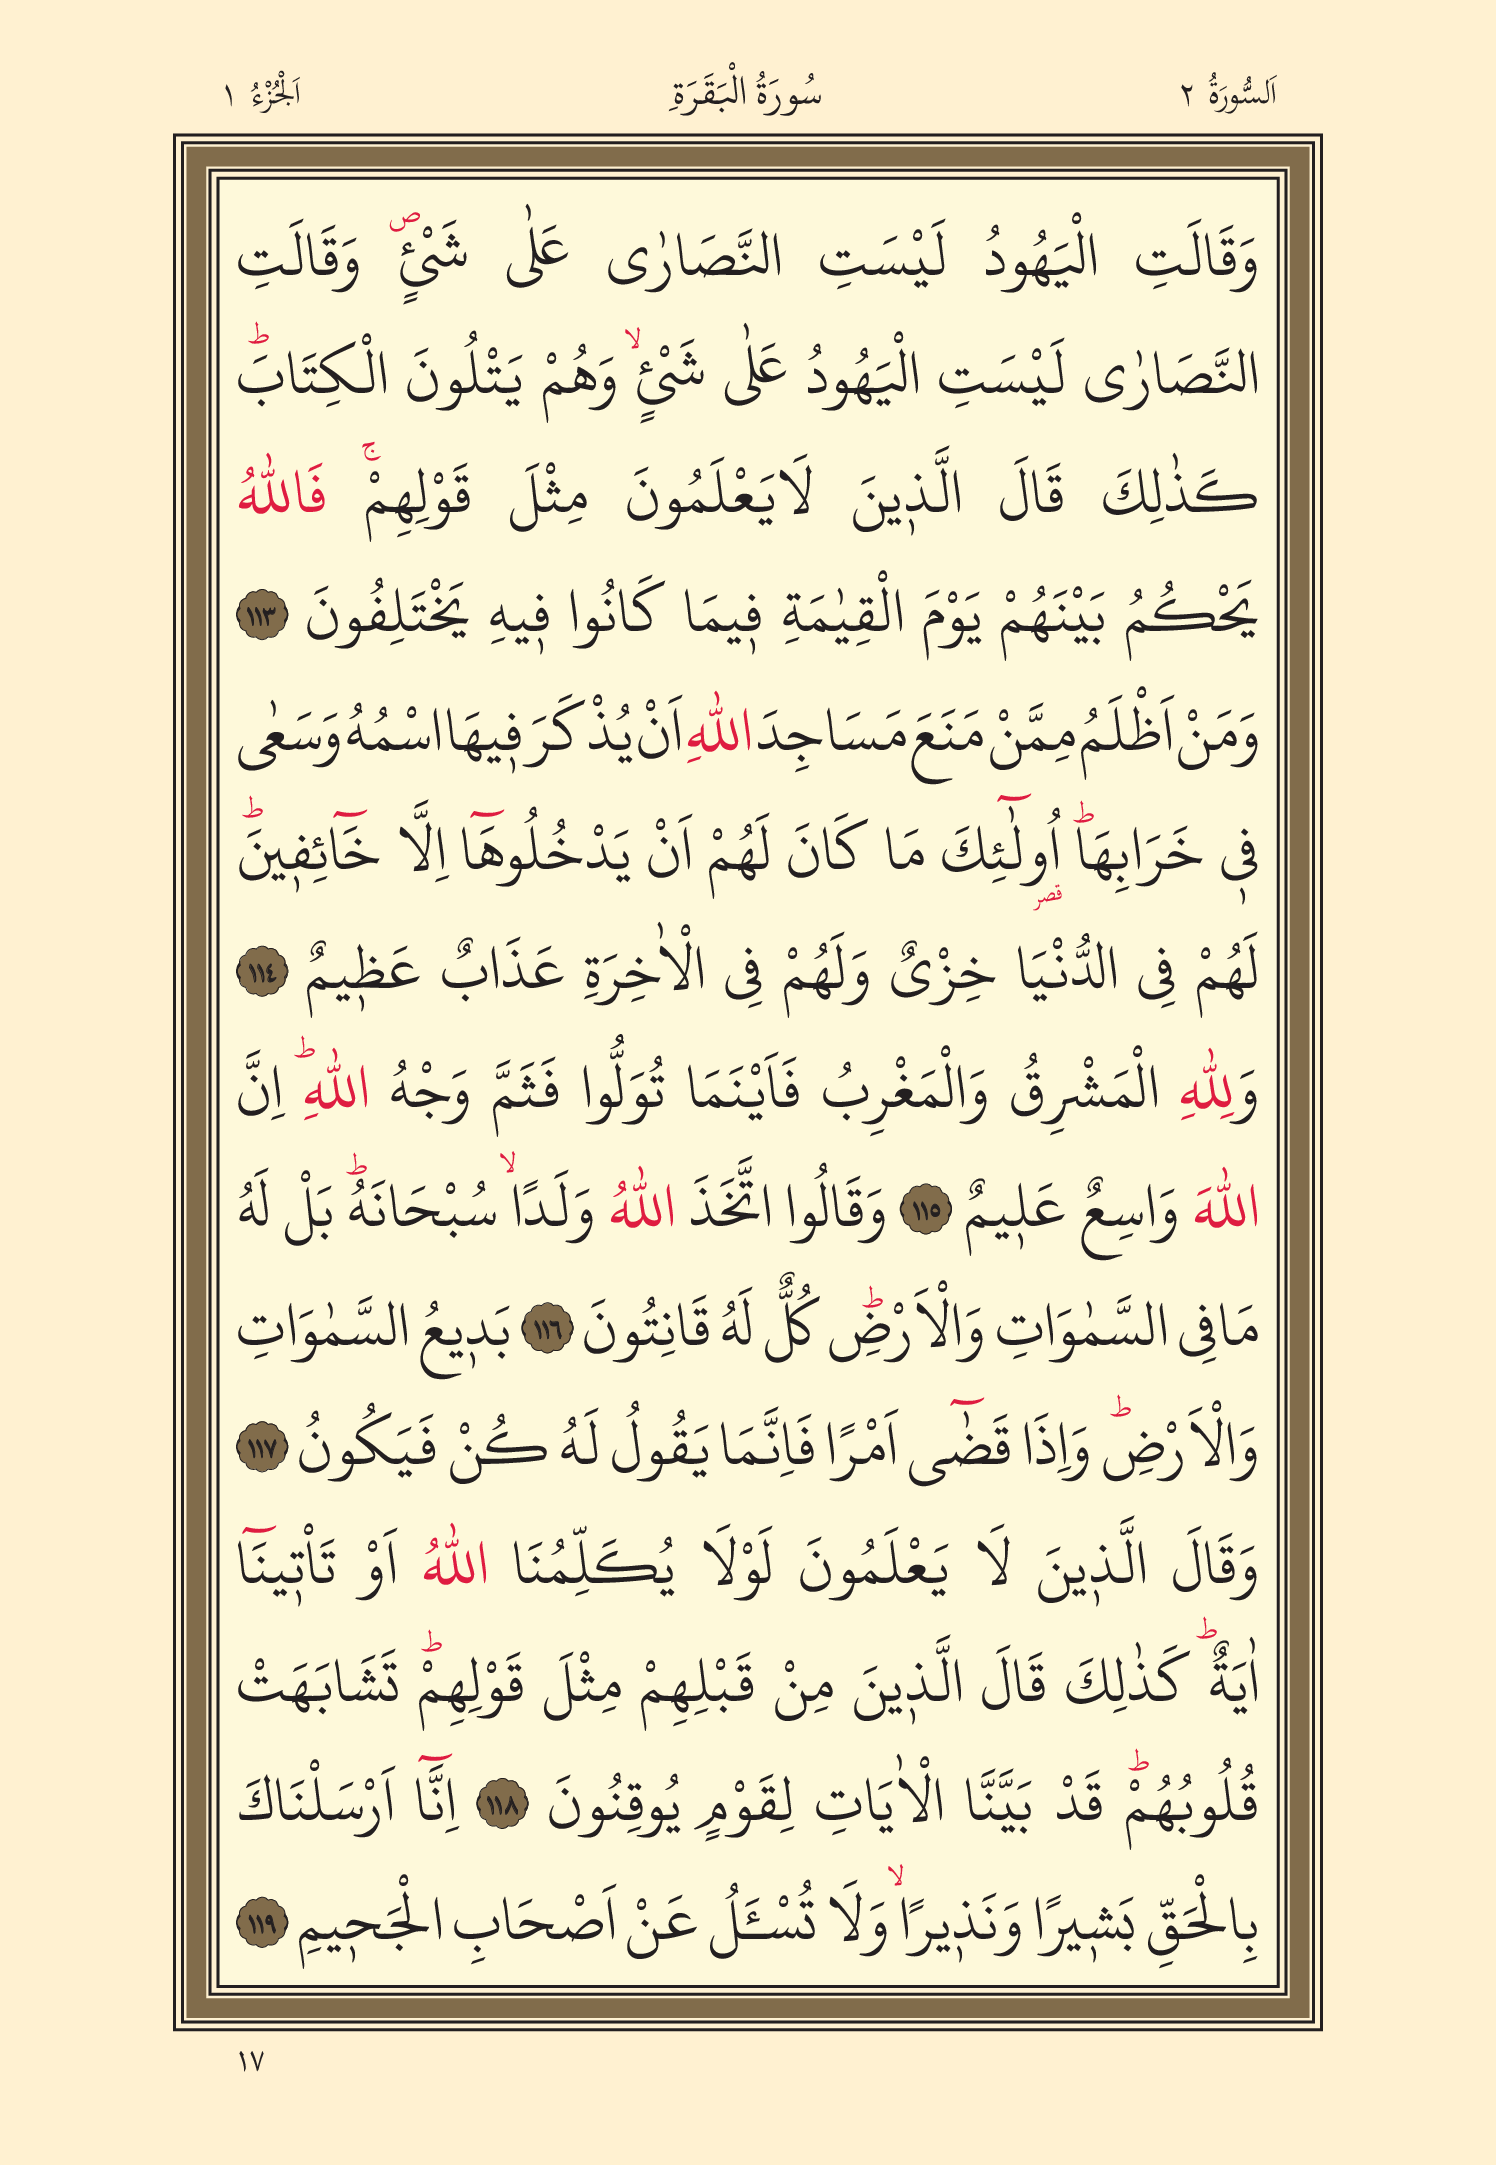 اَلسُّورَةُ ٢ سُورَةُ الْبَقَرَةِ اَلْجُزْءُ ١
وَقَالَتِ الْيَهُودُ لَيْسَتِ النَّصَارٰى عَلٰى شَيْءٍ ۖ وَقَالَتِ
النَّصَارٰى لَيْسَتِ الْيَهُودُ عَلٰى شَيْءٍ ۙ وَهُمْ يَتْلُونَ الْكِتَابَ ؕ
كَذٰلِكَ قَالَ الَّذ۪ينَ لَا يَعْلَمُونَ مِثْلَ قَوْلِهِمْ ۚ فَاللّٰهُ
يَحْكُمُ بَيْنَهُمْ يَوْمَ الْقِيٰمَةِ ف۪يمَا كَانُوا ف۪يهِ يَخْتَلِفُونَ ١١٣
وَمَنْ اَظْلَمُ مِمَّنْ مَنَعَ مَسَاجِدَ اللّٰهِ اَنْ يُذْكَرَ ف۪يهَا اسْمُهُ وَسَعٰى
ف۪ي خَرَابِهَا ؕ اُولٰٓئِكَ مَا كَانَ لَهُمْ اَنْ يَدْخُلُوهَٓا اِلَّا خَٓائِف۪ينَ ؕ
قصر
لَهُمْ فِى الدُّنْيَا خِزْىٌ وَلَهُمْ فِى الْاٰخِرَةِ عَذَابٌ عَظ۪يمٌ ١١٤
وَلِلّٰهِ الْمَشْرِقُ وَالْمَغْرِبُ فَاَيْنَمَا تُوَلُّوا فَثَمَّ وَجْهُ اللّٰهِ ؕ اِنَّ
اللّٰهَ وَاسِعٌ عَل۪يمٌ ١١٥ وَقَالُوا اتَّخَذَ اللّٰهُ وَلَدًا ۙ سُبْحَانَهُ ؕ بَلْ لَهُ
مَا فِى السَّمٰوَاتِ وَالْاَرْضِ ؕ كُلٌّ لَهُ قَانِتُونَ ١١٦ بَد۪يعُ السَّمٰوَاتِ
وَالْاَرْضِ ؕ وَاِذَا قَضٰٓى اَمْرًا فَاِنَّمَا يَقُولُ لَهُ كُنْ فَيَكُونُ ١١٧
وَقَالَ الَّذ۪ينَ لَا يَعْلَمُونَ لَوْلَا يُكَلِّمُنَا اللّٰهُ اَوْ تَاْت۪ينَٓا
اٰيَةٌ ؕ كَذٰلِكَ قَالَ الَّذ۪ينَ مِنْ قَبْلِهِمْ مِثْلَ قَوْلِهِمْ ؕ تَشَابَهَتْ
قُلُوبُهُمْ ؕ قَدْ بَيَّنَّا الْاٰيَاتِ لِقَوْمٍ يُوقِنُونَ ١١٨ اِنَّٓا اَرْسَلْنَاكَ
بِالْحَقِّ بَش۪يرًا وَنَذ۪يرًا ۙ وَلَا تُسْـَٔلُ عَنْ اَصْحَابِ الْجَح۪يمِ ١١٩
١٧